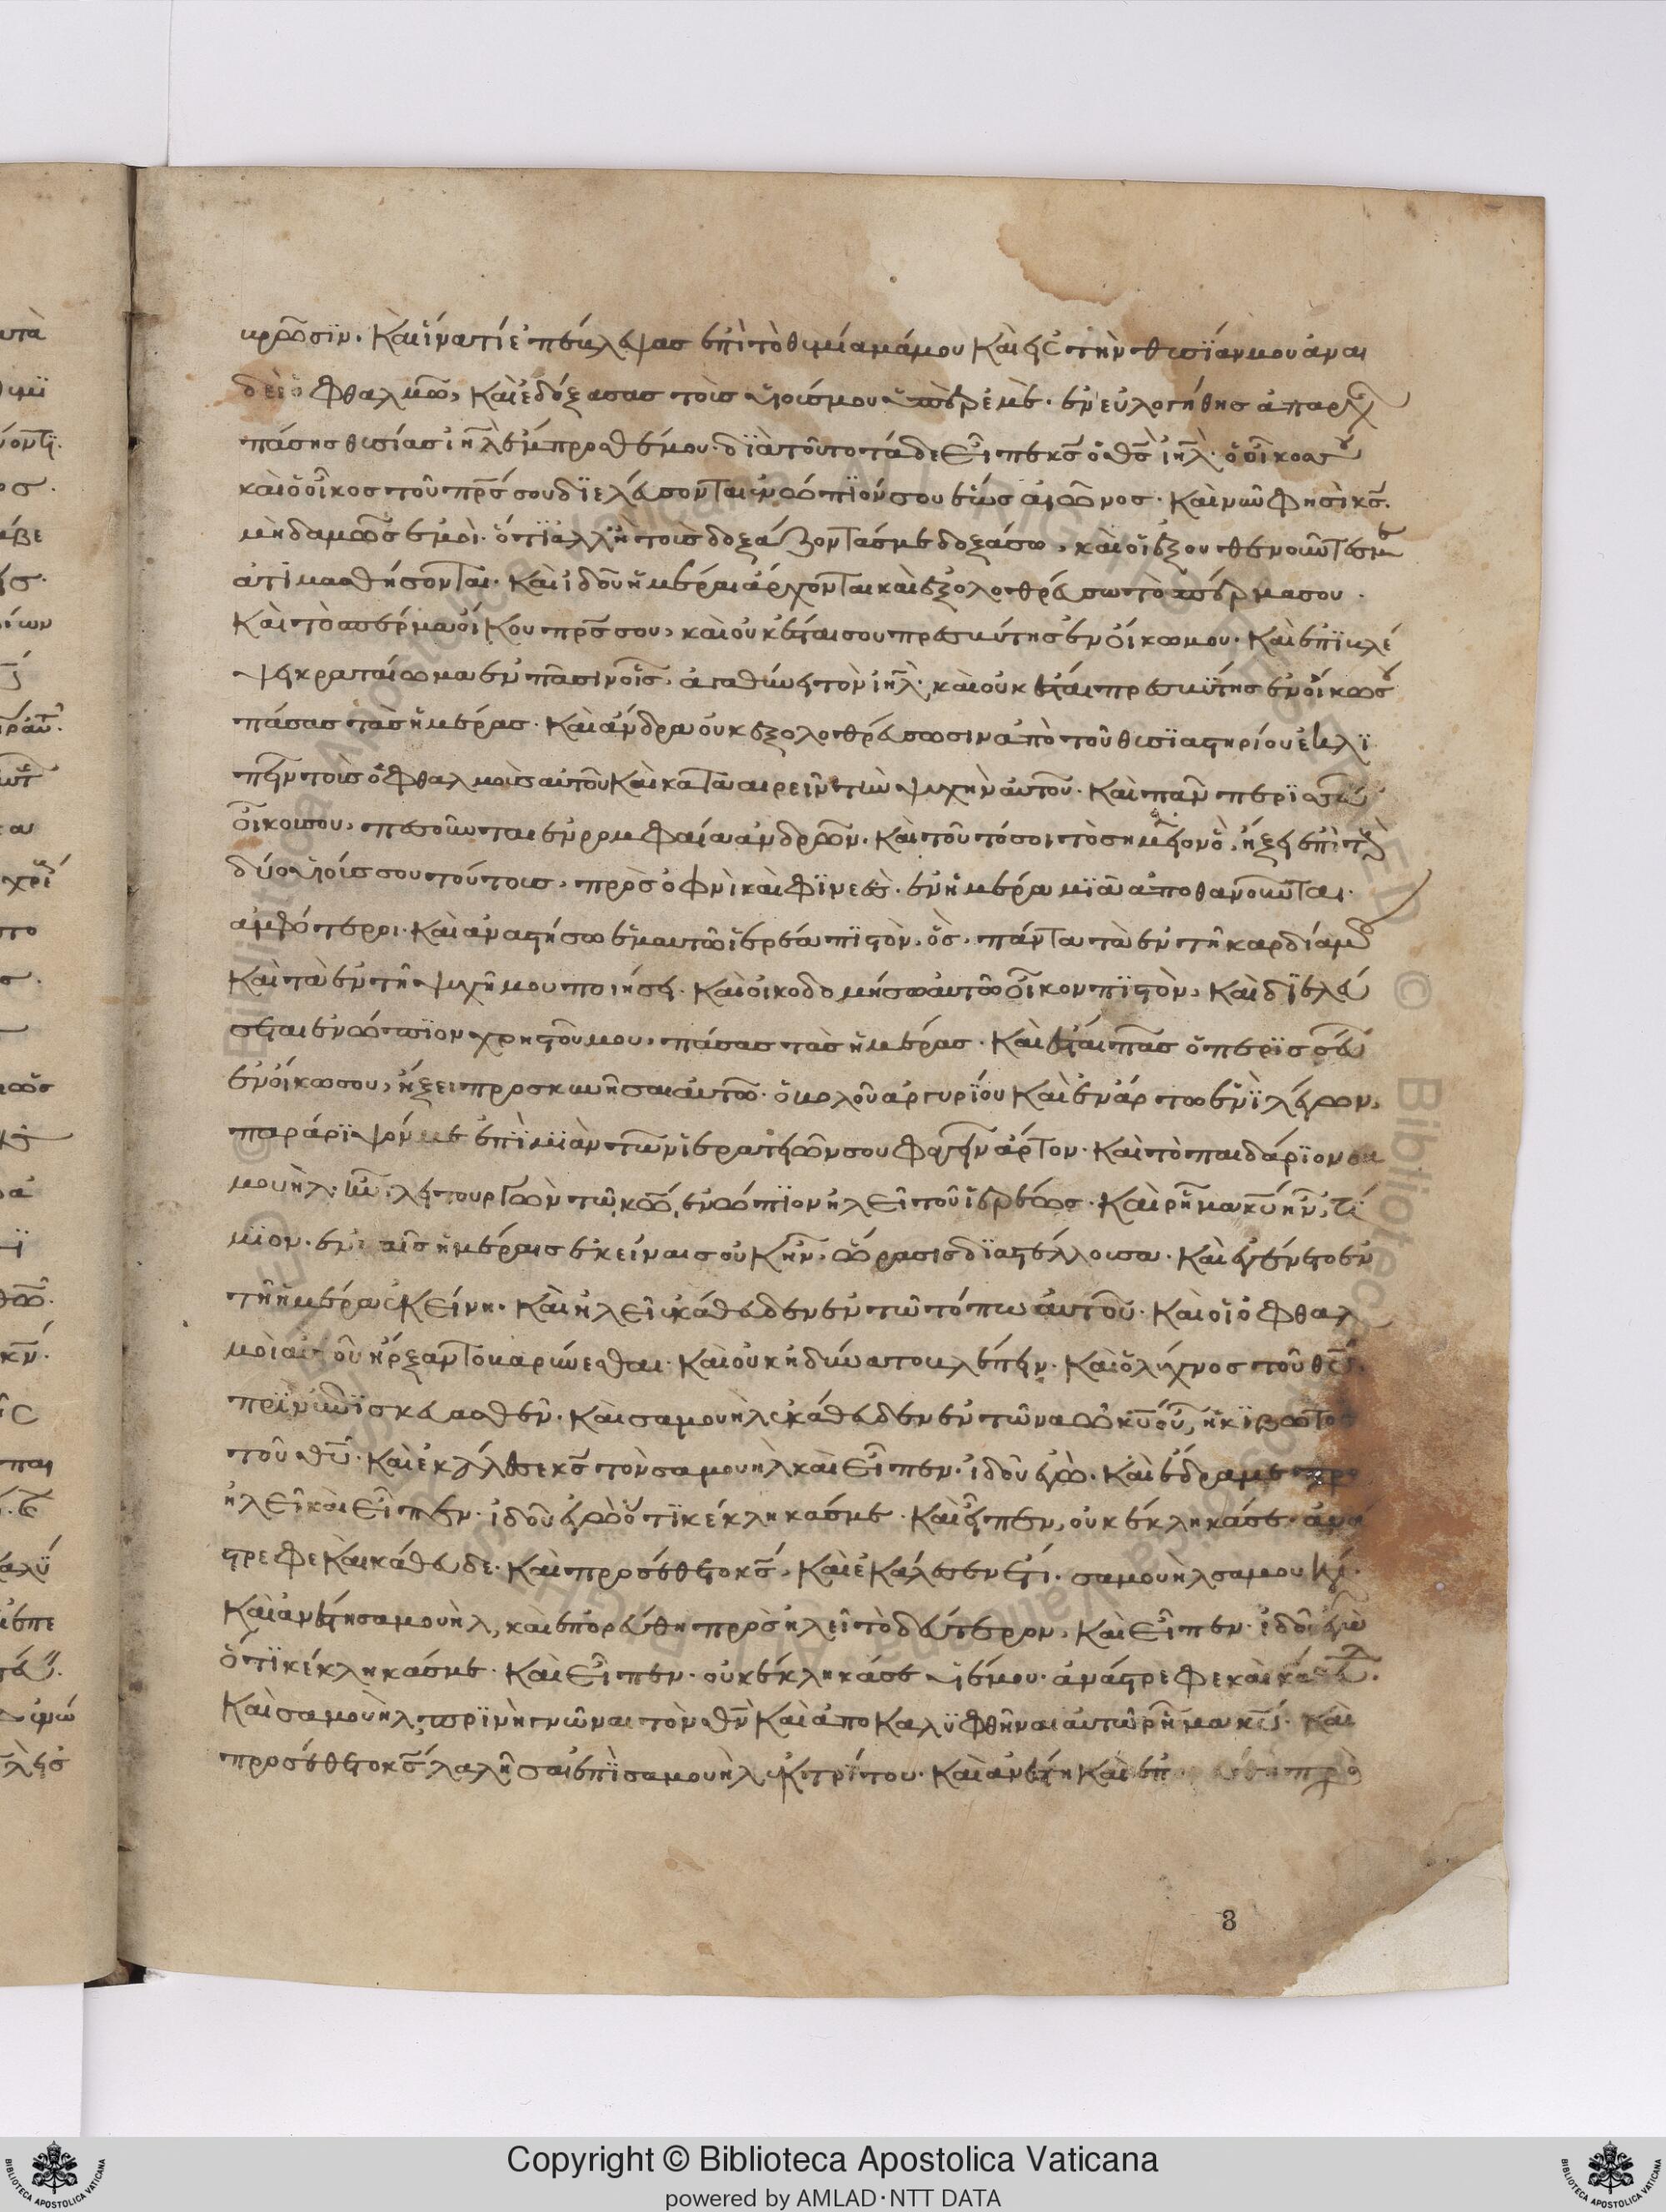 κρῶσϊν. Καὶ ἵνατί ἐπέκλεψας ἐπὶ τὸ θυμίαμά μου καὶ εἰς τὴν θυσΐαν μου ἀναι
δεῖ ὀφθαλμῶ, καὶ ἐδόξασας τοὺς υἱούς μου ὑπὲρ ἐμέ. ἐνευλογήθης ἀπαρχ
πάσης θυσίας ιηλ ἔμπροσθέν μου. δϊὰ τοῦτο τάδε εἶπεν κς ὁ θς ιηλ. ὁ οἶκος σου
καὶ ὁ οἶκος τοῦ πρς σου δϊελεύσονται ἐνώπϊόν σου ἕως αἰῶνος. Καὶ νῦν φησὶ κς.
μὴδαμῶς ἐμοί. ὅτϊ ἀλλ' ἢ τοὺς δοξάζοντάς με δοξάσω, καὶ οἱ ἐξουθενοῦντές με
ἀτιμασθήσονται. Καὶ ἰδοὺ ἡμέραι ἔρχονται καὶ ἐξολοθρεύσω τὸ σπέρμα σου.
Καὶ τὸ σπέρμα οἴκου πρς σου, καὶ οὐκ ἔσται σου πρεσβύτης ἐν οἴκω μου. Καὶ ἐπϊβλέ
ψει κραταίωμα ἐν πᾶσιν οἷς ἀγαθύνει τὸν ιηλ. καὶ οὐκ ἔσται πρεσβΰτης ἐν οἴκω σου
πάσας τὰς ἡμέρας. Καὶ ἄνδρα οὐκ ἐξολοθρεύσωσιν ἀπὸ τοῦ θυσϊαστηρίου ἐκλϊ
πεῖν τοὺς ὀφθαλμοὺς αὐτοῦ καὶ καταρρεῖν τὴν ψυχὴν αὐτοῦ. Καὶ πᾶν περϊσσεῦ
οἴκου σου, πεσοῦνται ἐν ρομφαία ἀνδρῶν. Καὶ τοῦτό σοι τὸ σημεῖον ὃ ἥξει ἐπὶ τοὺς
δύο υἱούς σου τούτους, πρὸς ὀφνὶ καὶ φϊνεές. ἐν ἡμέρα μϊᾶ ἀποθανοῦνται.
ἀμφότεροι. Καὶ ἀναστήσω ἐμαυτῶ ἱερέα πϊστόν, ὃς πάντα τὰ ἐν τῆ καρδία μου
καὶ τὰ ἐν τῆ ψυχῆ μου ποιήσει. Καὶ οἰκοδομήσω αὐτῶ οἶκον πϊστόν, καὶ δϊελεύ
σεται ἐνώπϊον χρηστοῦ μου, πάσας τὰς ἡμέρας. Καὶ ἔσται πᾶς ὁ περϊσσεύ
ἐν οἴκω σου, ἥξει προσκυνῆσαι αὐτῶ. ὀβολοῦ ἀργυρίου καὶ ἐν ἄρτω ἑνϊ λέγων,
παράρϊψόν με ἐπϊ μϊὰν τῶν ἱερατειῶν σου φαγεῖν ἄρτον. Καὶ τὸ παιδάρϊον σα
μουὴλ ἦν λειτουργῶν τῶ κῶ, ἐνώπϊον ἠλεὶ τοῦ ἱερέως. Καὶ ρῆμα κυ ἦν τί
μϊον. ἐν ταῖς ἡμέραις ἐκείναις οὐκ ἦν ὅρασις δϊαστέλλουσα. Καὶ ἐγένετο ἐν
τῆ ἡμέρα ἐκείνη. Καὶ ἠλεὶ ἐκάθευδεν ἐν τῶ τόπω αὐτοῦ. Καὶ οἱ ὀφθαλ
μοὶ αὐτοῦ ἤρξαντο βαρύνεσθαι. Καὶ οὐκ ἠδύνατο βλέπειν. Καὶ ὁ λύχνος τοῦ θυ
πρϊν ἐπϊσκευασθῆν. Καὶ σαμουὴλ ἐκάθευδεν ἐν τῶ ναῶ κυ οὗ ἡ κϊβωτὸς
τοῦ θυ. Καὶ ἐκάλεσε κς τὸν σαμουὴλ καὶ εἶπεν. ἰδοὺ ἐγώ. Καὶ ἔδραμε προ
ἠλεὶ καὶ εἶπεν. ἰδοὺ ἐγὼ ὅτϊ κέκληκάς με. Καὶ εἶπεν, οὐ κέκληκά σε. ἀνά
στρεφε καὶ κάθευδε. Καὶ προσέθετο κς, καὶ ἐκάλεσεν ἔτι. σαμουὴλ σαμουήλ.
Καὶ ἀνέστη σαμουὴλ, καὶ ἐπορεύθη πρὸς ἠλεὶ τὸ δεύτερον, καὶ εἶπεν. ἰδοὺ ἐγὼ
ὅτϊ κέκληκάς με. Καὶ εἶπεν. οὐ κέκληκά σε υἱέ μου. ἀνάστρεφε καὶ κάθευ.
Καὶ σαμουὴλ, πρϊν ἢ γνῶναι τὸν θν καὶ ἀποκαλϋφθῆναι αὐτῶ ρῆμα κυ. Καὶ
προσέθετο κς λαλῆσαι ἐπϊ σαμουὴλ ἐκ τρίτου. Καὶ ἀνέστη καὶ ἐπ πρὸ
8
Copyright © Biblioteca Apostolica Vaticana
powered by AMLAD·NTT DATA